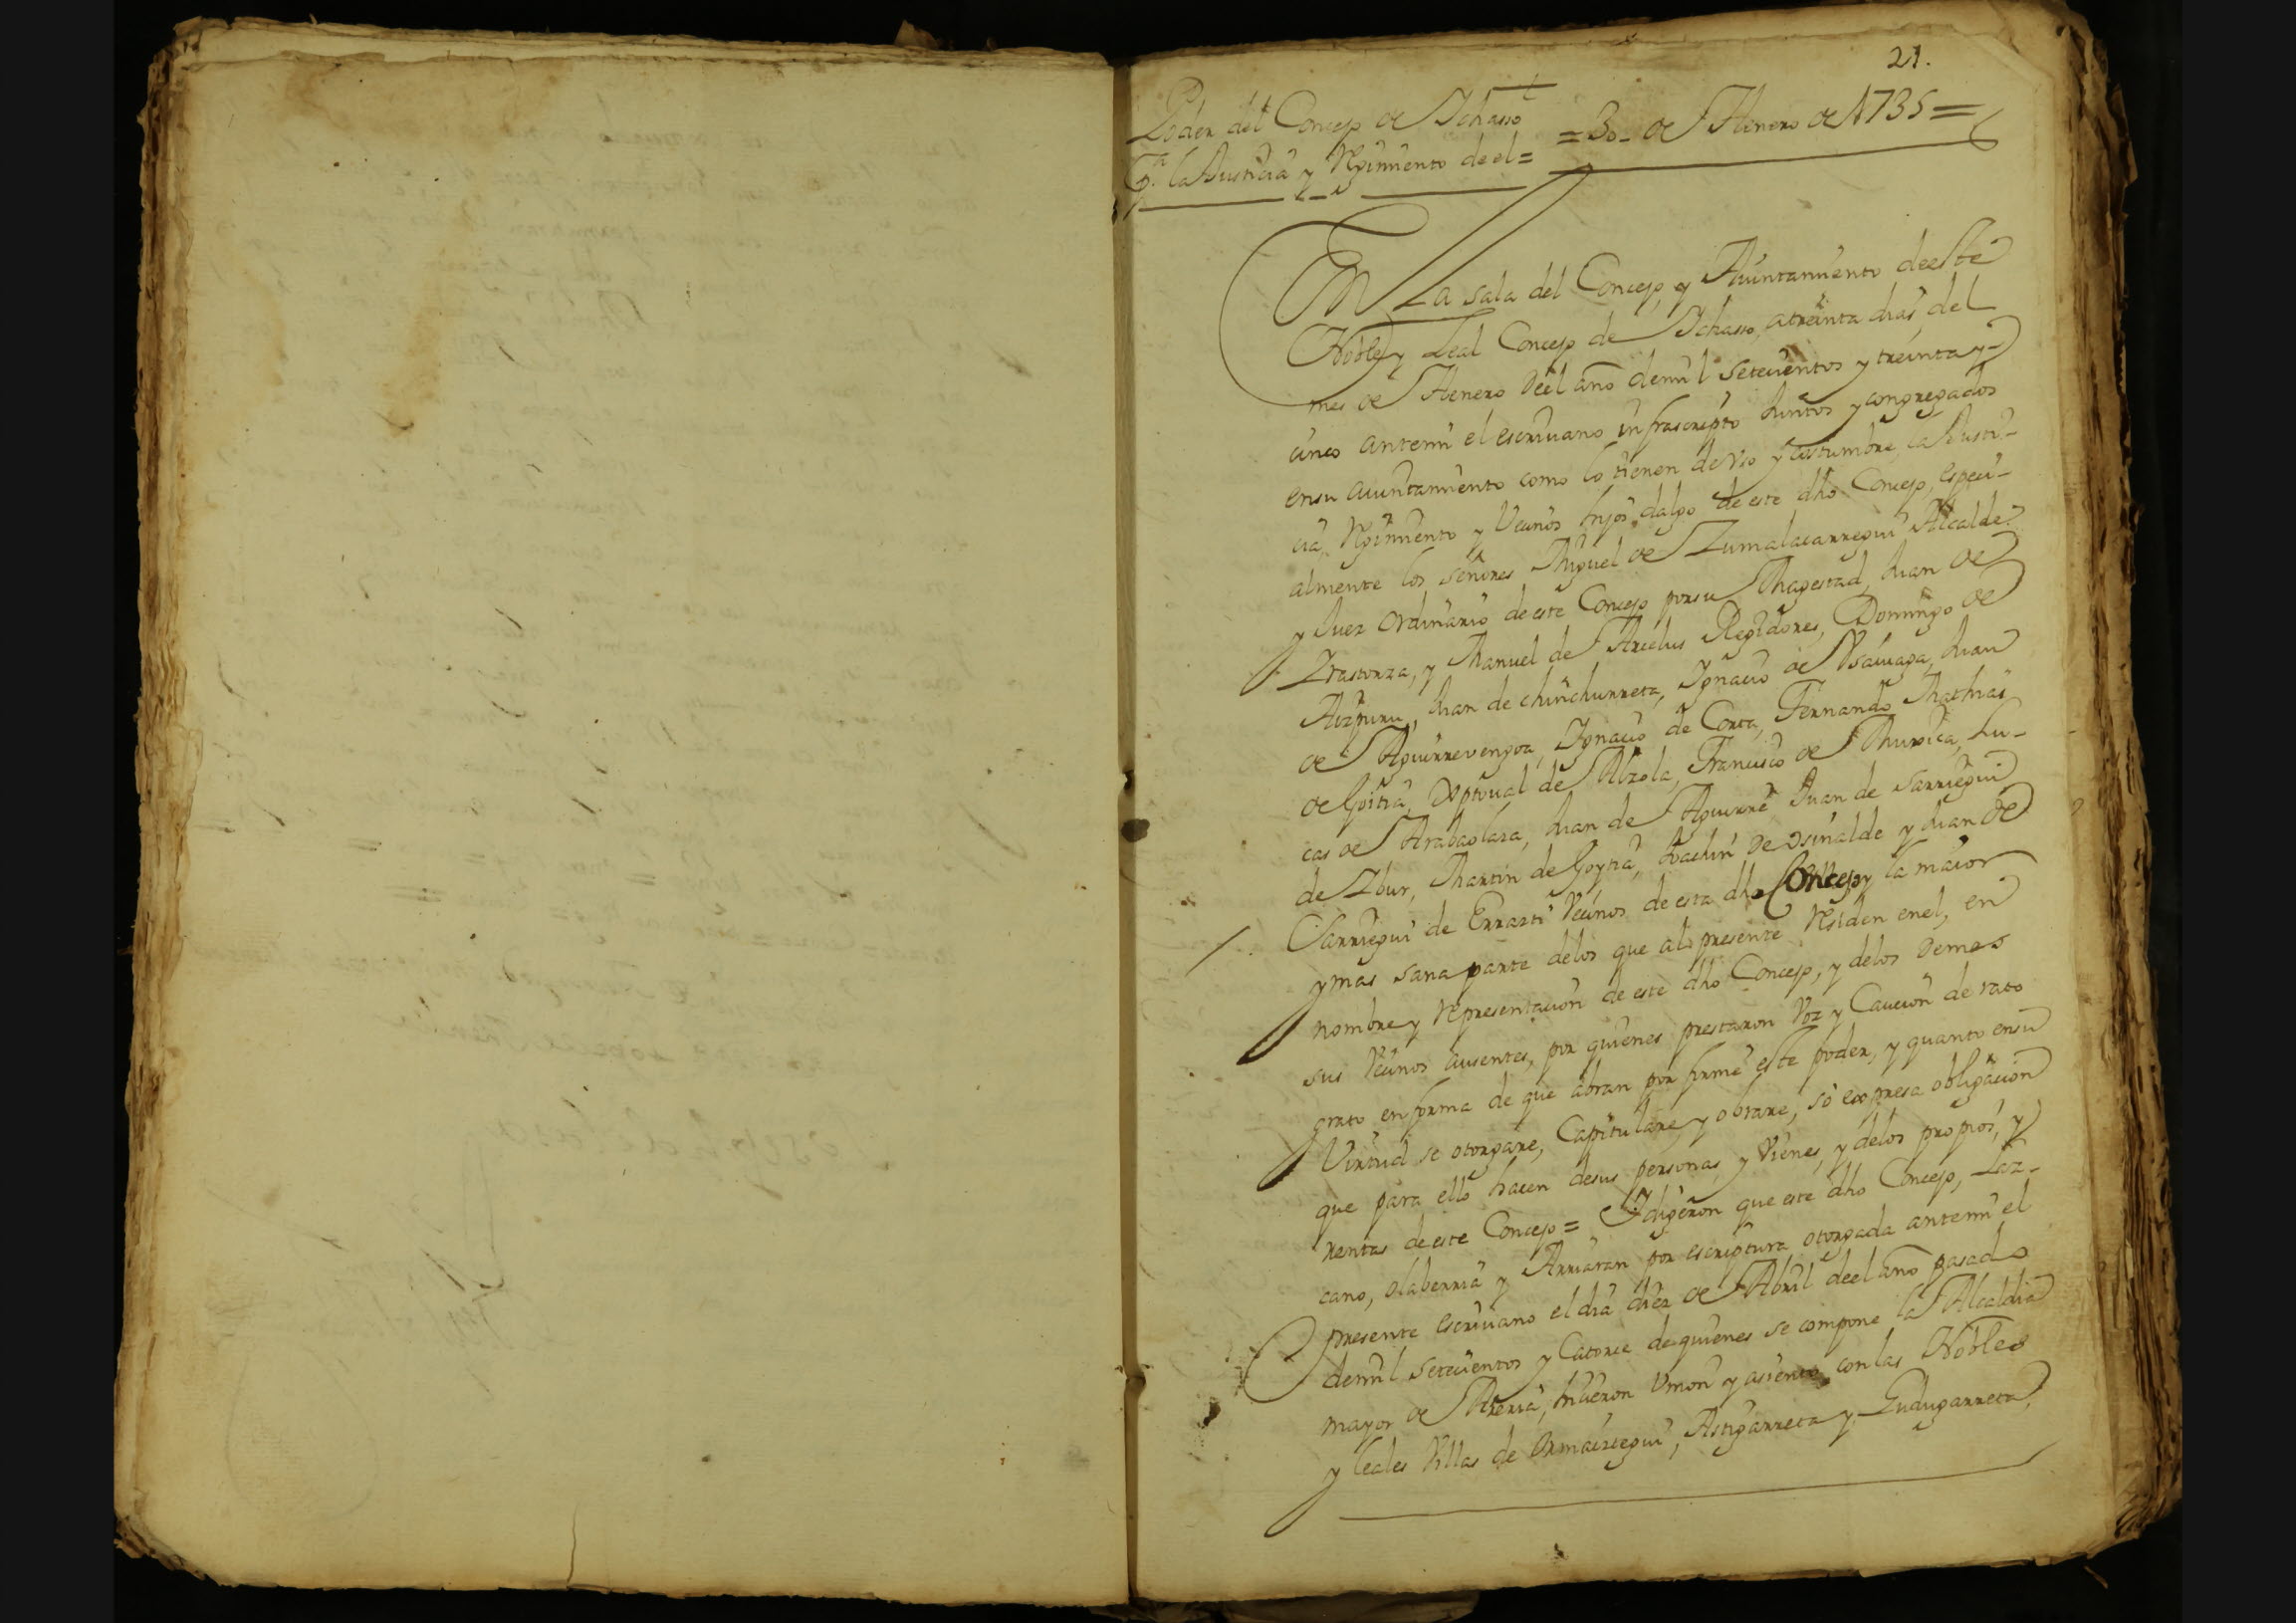 21.
Poder del Concejo de Ichasso
p.ª la Justicia y Regimiento de el =
= 30 - de Henero de 1735 =
En La sala del Concejo, y Aiuntamiento de este
Noble y Leal Concejo de Ichasso, atreinta dias del
mes de Henero deel año demil setecientos y treinta y
cinco antemi el escriuano infrascripto Juntos y congregados
ensu aiuntamiento como lo tienen de vso y costumbre, la Justi-
cia, Regimiento y Vecinos hijos dalgo de este dho Concejo, especi-
almente los señores Miguel de Zumalacarregui Alcalde
y Juez ordinario de este Concejo por su Magestad, Juan de
Irastorza, y Manuel de Arcelus Regidores, Domingo de
Aizpuru, Juan de chinchurreta, Ignacio de Vsauiaga, Juan
de Aguirrevengoa, Ignacio de Corta, Fernando Mathias
de Goitia, Xptoual de Alzola, Francisco de Muxica, Lu-
cas de Arabaolaza, Juan de Aguirre, Juan de Sarriegui
de Ibur, Martin de Goytia, Joachin de osinalde y Juan de
Sarriegui de Errazti Vecinos de esta dho Concejo y la maior
y mas sana parte delos que al presente Residen enel, en
nombre y Representacion de este dho Concejo, y delos demas
sus Vecinos ausentes, por quienes prestaron Voz y Caucion de rato
grato en forma de que abran por firme este poder, y quanto ensu
Virtud se otorgare, Capitulare, y obrare, só expresa obligacion
que para ello hacen desus personas, y Vienes, y delos propios, y
rentas de este Concejo = I digeron que este dho Concejo, Laz-
cano, olaberria y Arriaran por escriptura otorgada antemi el
presente escriuano el dia diez de Abril deel año pasado
demil setecientos y Catorce de quienes se compone la Alcaldia
mayor de Areria, hicieron Vnion y asiento con las Nobles
y leales Villas de Ormaiztegui, Astigarreta y Gudugarreta,